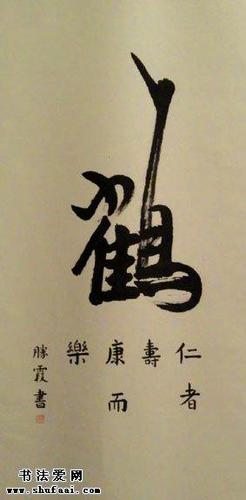 鶴
仁者
壽
康而
樂
勝霞書
书法爱网
www.shufaai.com